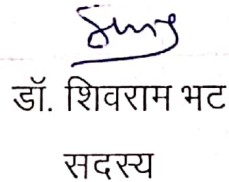 डॉ. शिवराम भट
सदस्य